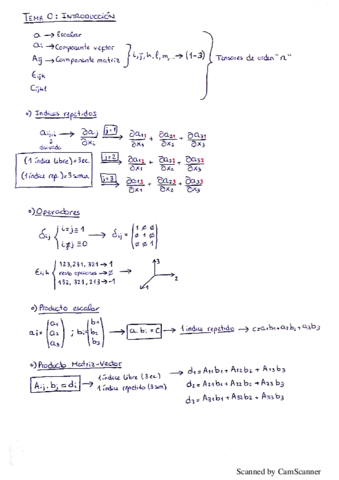 TEMA 0: INTRODUCCIÓN
a → Escalar
ai → Componente vector
Aij → Componente matriz
i, j, k, l, m, ... → (1-3)
Tensores de orden "n"
Eijk
Cijkl
o) Indices repetidos
aij,i → ∂aij/∂xi
derivada
j=1 → ∂a11/∂x1 + ∂a21/∂x2 + ∂a31/∂x3
(1 índice libre) = 3 ec.
(1 índice rep.) = 3 suma
j=2 → ∂a12/∂x1 + ∂a22/∂x2 + ∂a32/∂x3
j=3 → ∂a13/∂x1 + ∂a23/∂x2 + ∂a33/∂x3
o) Operadores
δij { i=j ≡ 1
i≠j ≡ 0
→ δij = (1 0 0
0 1 0
0 0 1)
Eijk { 123, 231, 321 → 1
resto opciones → 0
132, 321, 213 → -1
3
2
1
o) Producto escalar
ai = (a1 a2 a3) ; bi = (b1 b2 b3) → ai · bi = C → 1 índice repetido → c = a1b1 + a2b2 + a3b3
o) Producto Matriz-Vector
Aij · bj = di → 1 índice libre (3 ec)
1 índice repetido (3 sum)
d1 = A11b1 + A12b2 + A13b3
d2 = A21b1 + A22b2 + A23b3
d3 = A31b1 + A32b2 + A33b3
Scanned by CamScanner